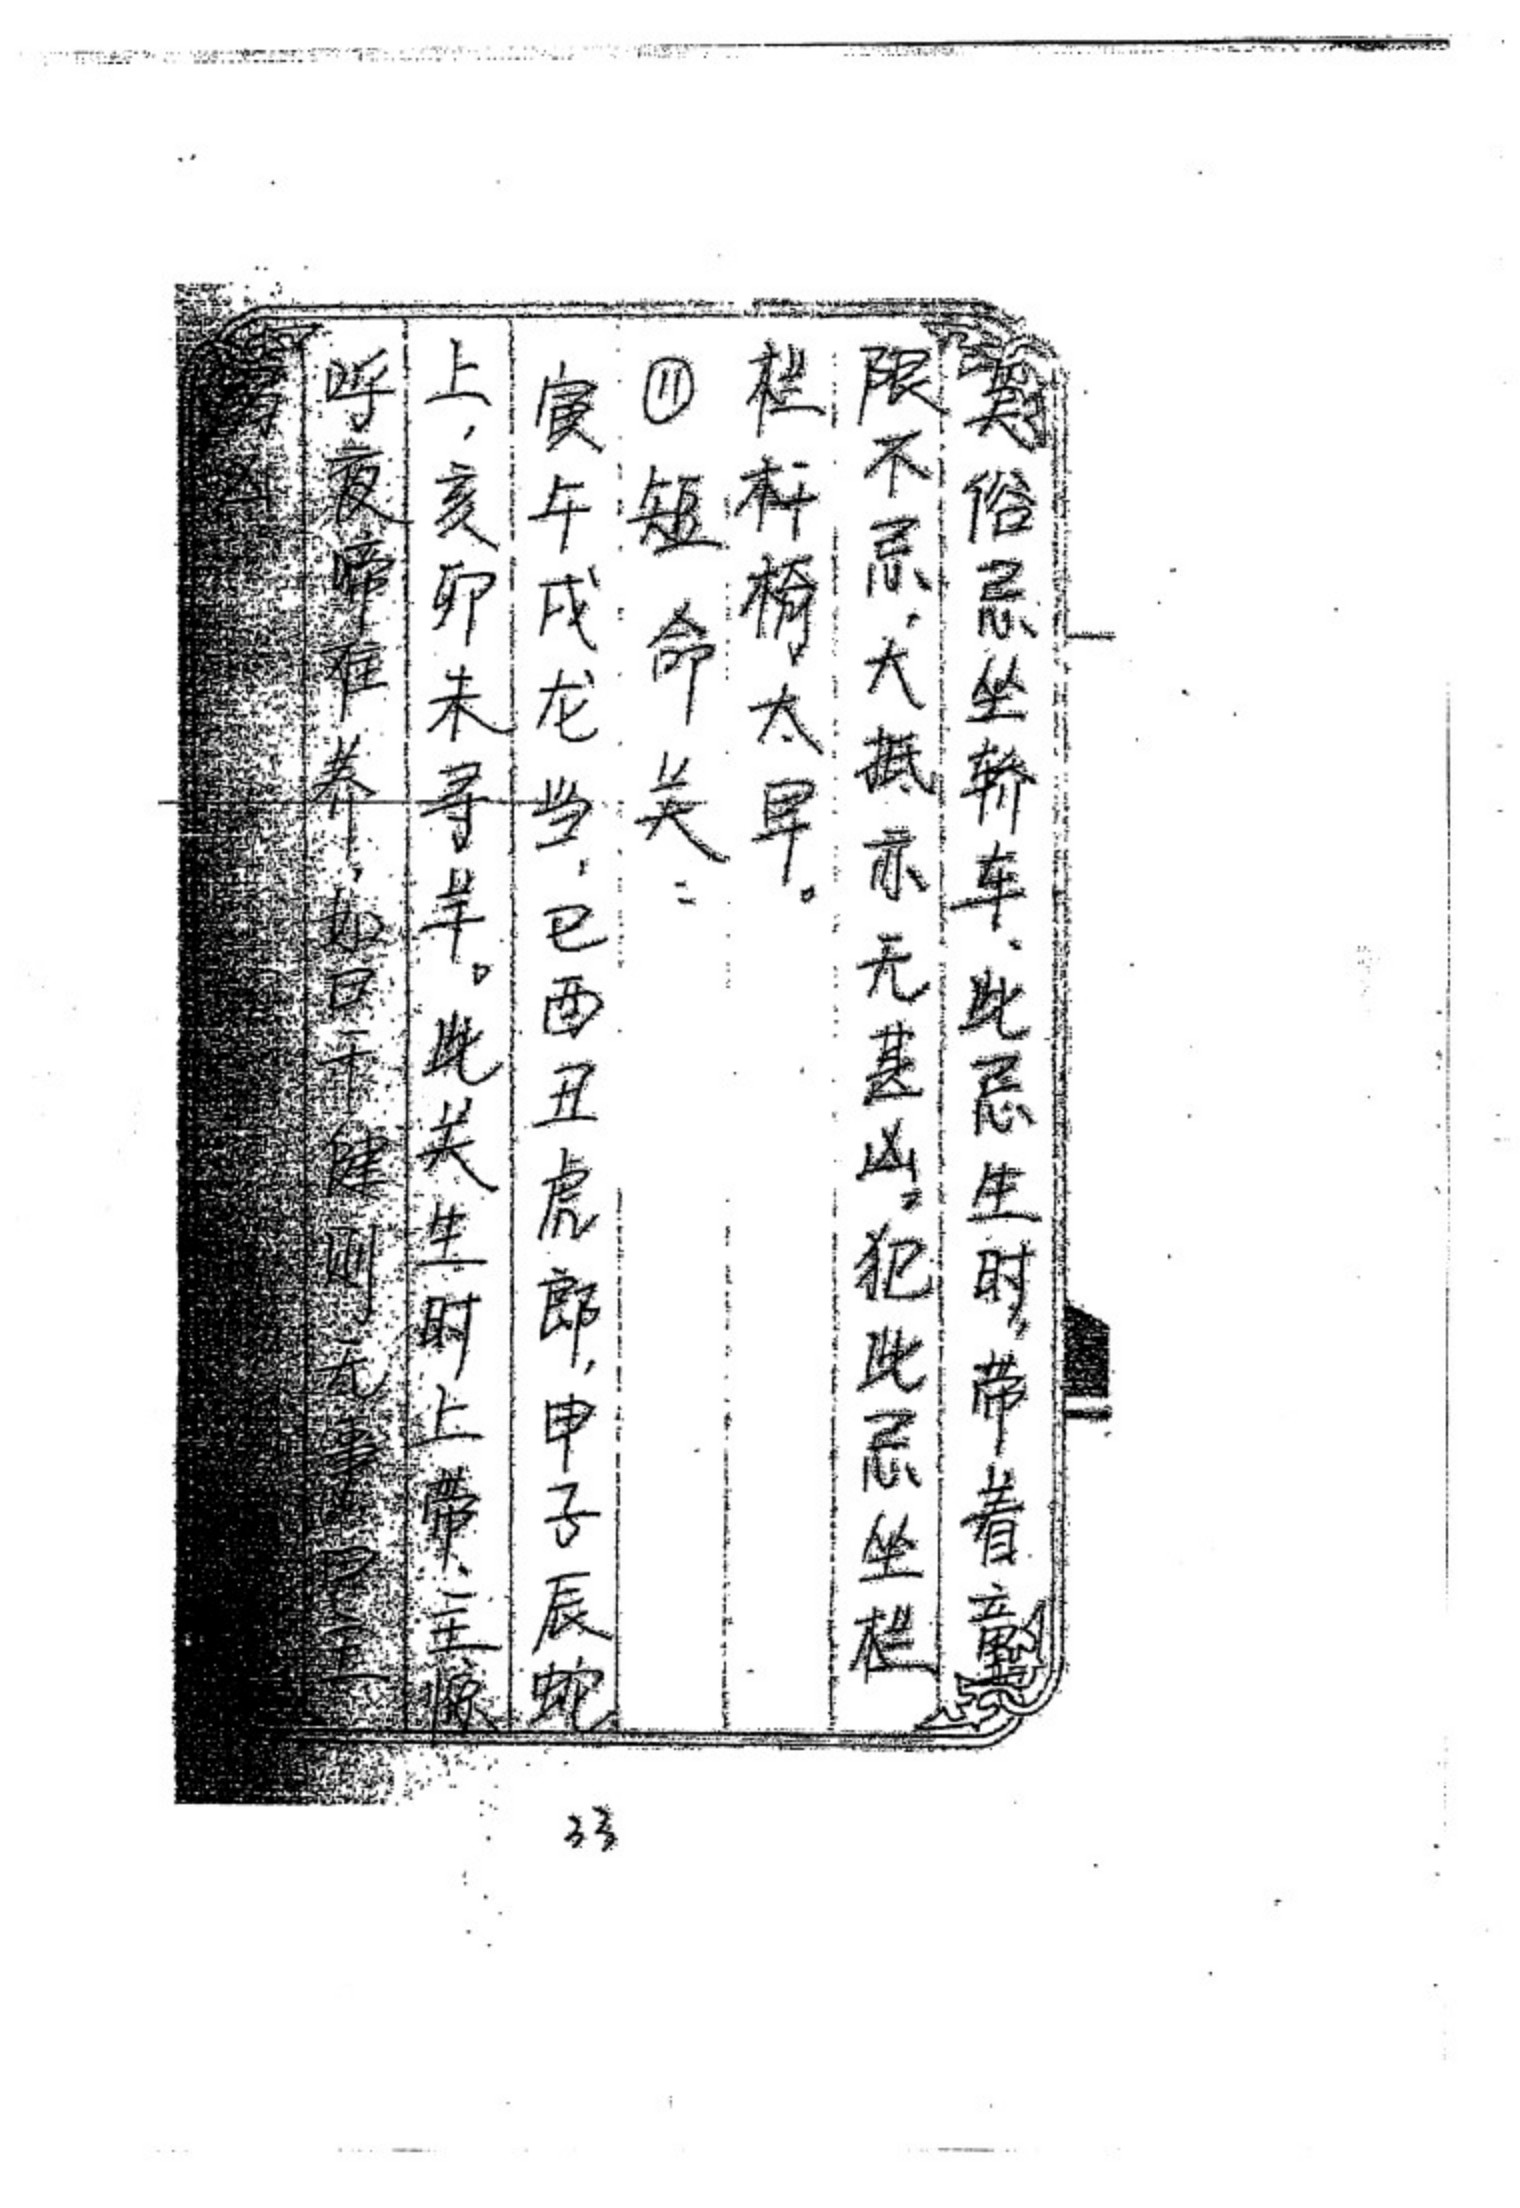 俗忌坐轿车、此忌生时,带着童
限不忌、大抵亦无甚凶。犯此忌坐栏
栏杆椅太早。
⑪短命关:
寅午戌龙当、巳酉丑虎郎,申子辰蛇
上,亥卯未寻羊。此关生时上带、主惊
呼夜啼难养、如日干健则无事
33